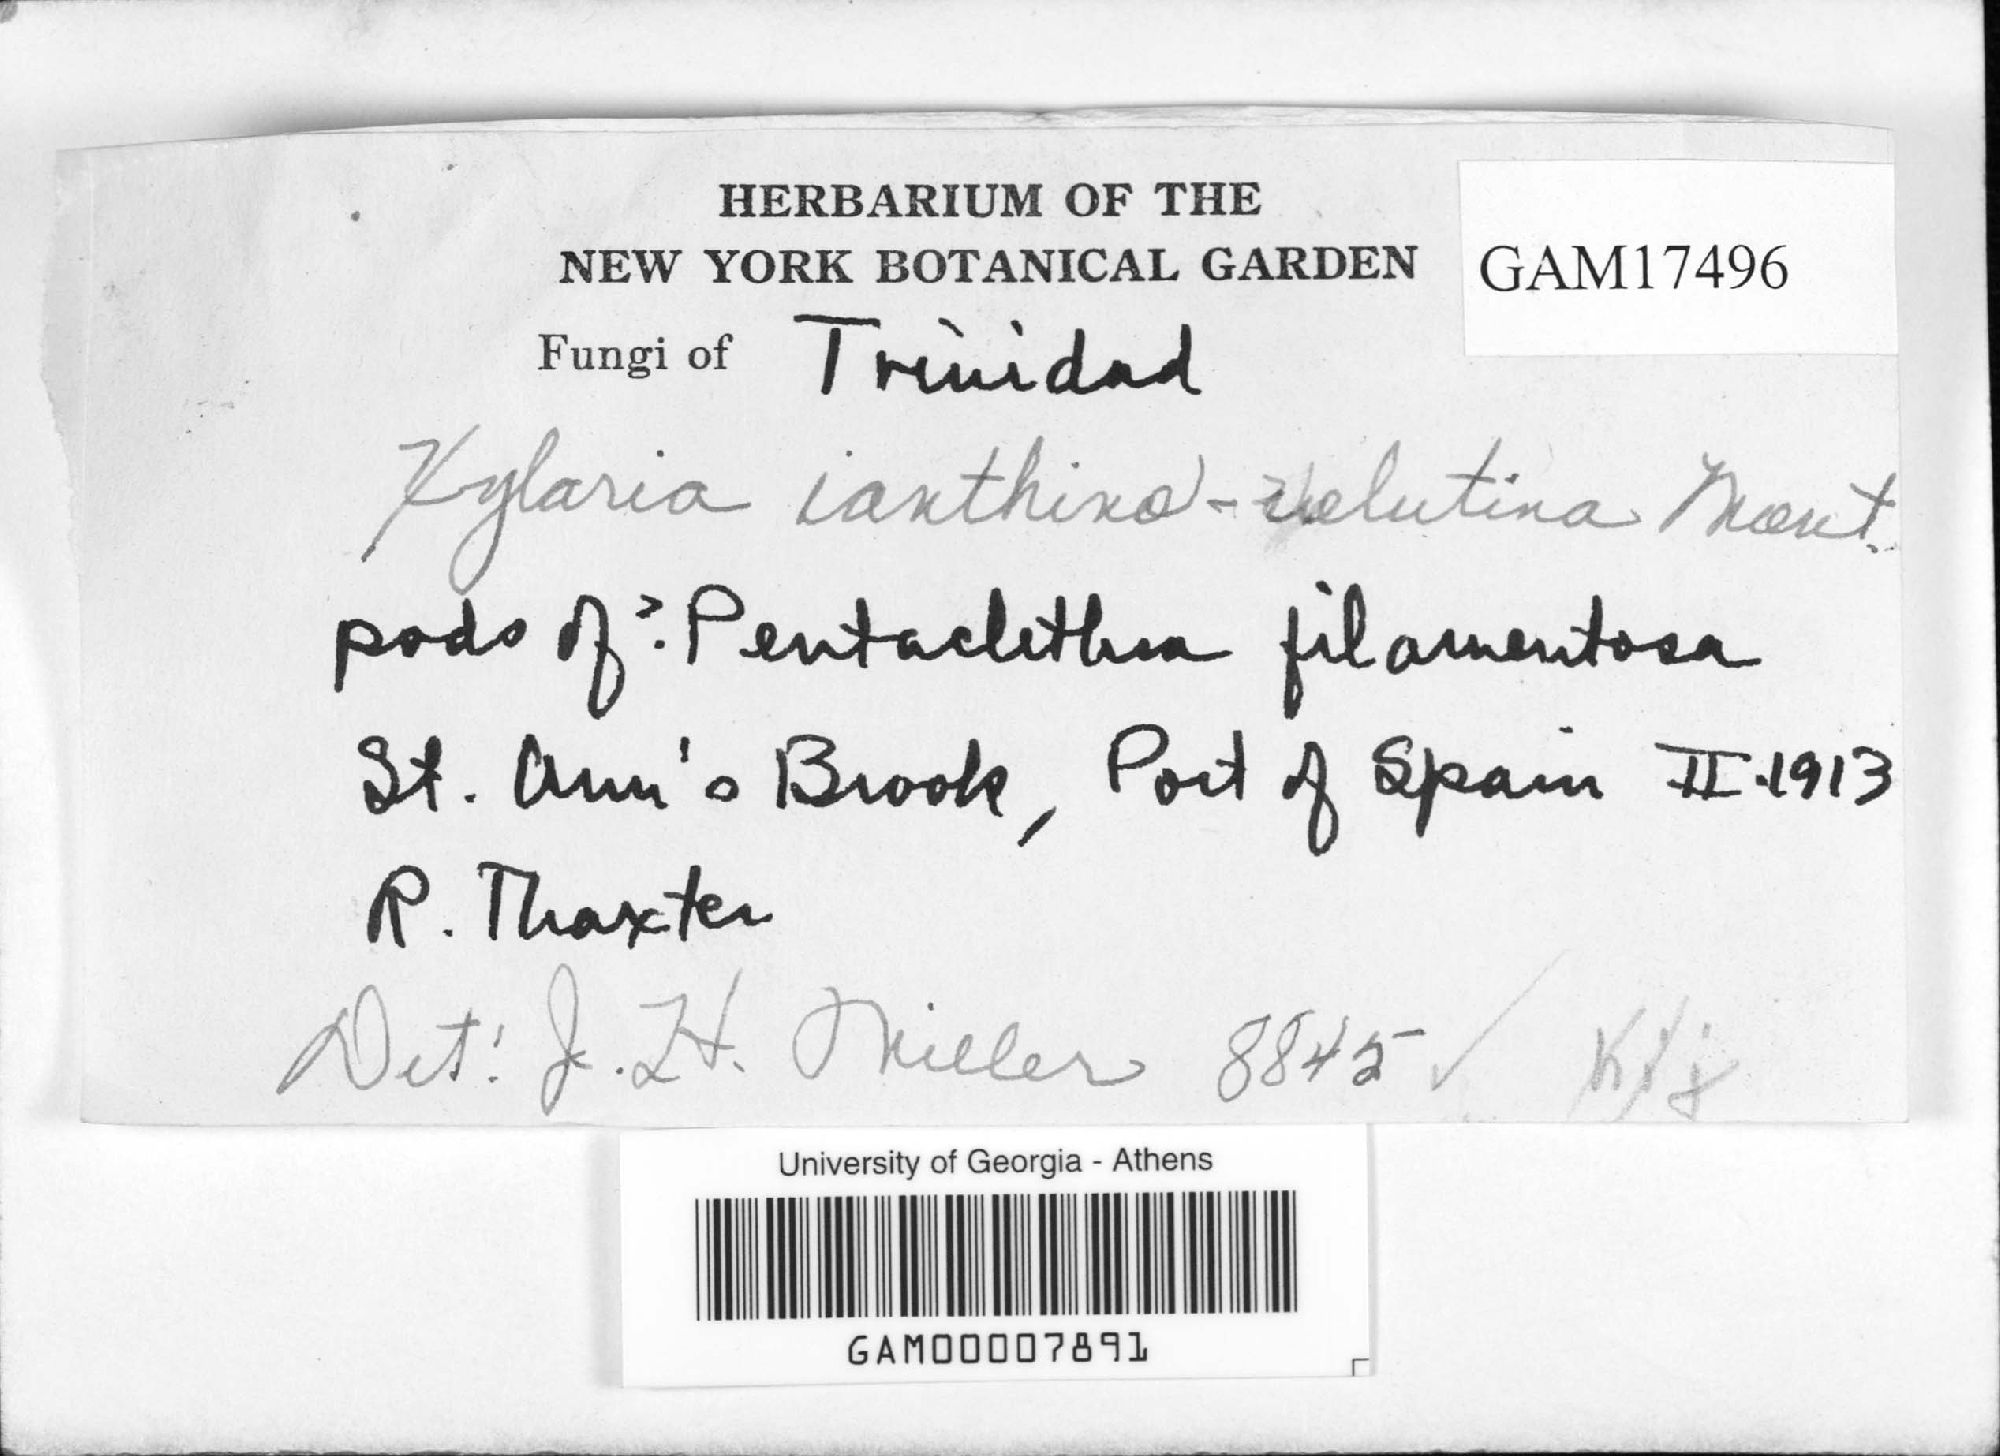 HERBARIUM OF THE
NEW YORK BOTANICAL GARDEN
GAM17496
Fungi of Trinidad
Xylaria ianthino-velutina Mont.
pods of ?: Pentaclethra filamentosa
St. Ann's Brook, Port of Spain II-1913
R. Thaxter
Det: J. H. Miller 8845 ✓
University of Georgia - Athens
GAM00007891